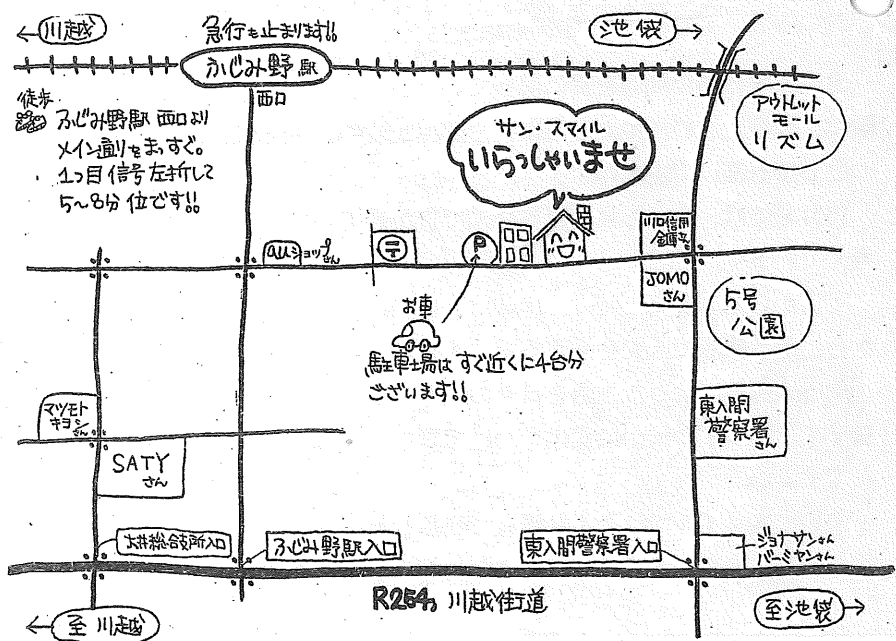 ←川越
急行も止まります!!
池袋→
ふじみ野駅
西口
徒歩
ふじみ野駅 西口より
メイン通りをまっすぐ。
1つ目信号左折して
5〜8分位です!!
アウトレット
モール
リズム
サン・スマイル
いらっしゃいませ
auショップさん
〒
P
川口信用
金庫さん
JOMO
さん
5号
公園
お車
駐車場はすぐ近くに4台分
ございます!!
マツモト
キヨシさん
SATY
さん
東入間
警察署
さん
大井総合支所入口
ふじみ野駅入口
東入間警察署入口
ジョナサンさん
バーミヤンさん
R254 川越街道
←至川越
至池袋→